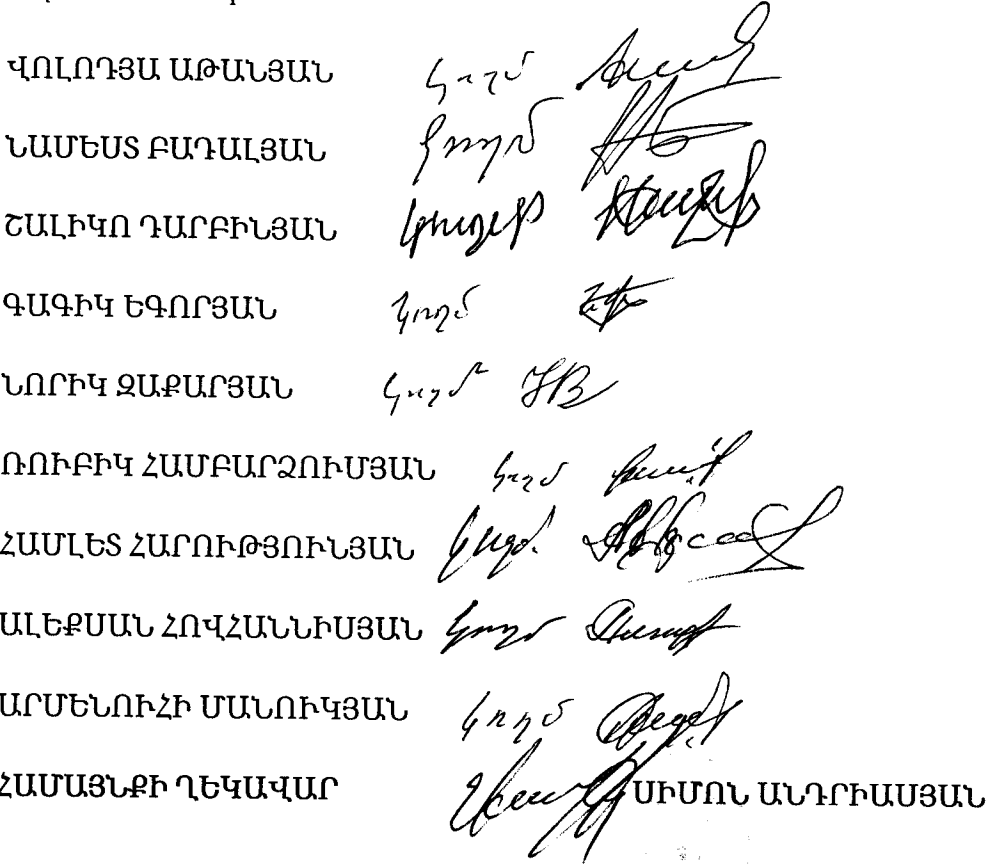 ՎՈԼՈԴՅԱ ԱԹԱՆՅԱՆ կողմ
ՆԱՄԵՍՏ ԲԱԴԱԼՅԱՆ կողմ
ՇԱԼԻԿՈ ԴԱՐԲԻՆՅԱՆ
ԳԱԳԻԿ ԵԳՈՐՅԱՆ կողմ
ՆՈՐԻԿ ԶԱՔԱՐՅԱՆ կողմ
ՌՈՒԲԻԿ ՀԱՄԲԱՐՁՈՒՄՅԱՆ կողմ
ՀԱՄԼԵՏ ՀԱՐՈՒԹՅՈՒՆՅԱՆ կողմ.
ԱԼԵՔՍԱՆ ՀՈՎՀԱՆՆԻՍՅԱՆ կողմ
ԱՐՄԵՆՈՒՀԻ ՄԱՆՈՒԿՅԱՆ կողմ
ՀԱՄԱՅՆՔԻ ՂԵԿԱՎԱՐ ՍԻՄՈՆ ԱՆԴՐԻԱՍՅԱՆ